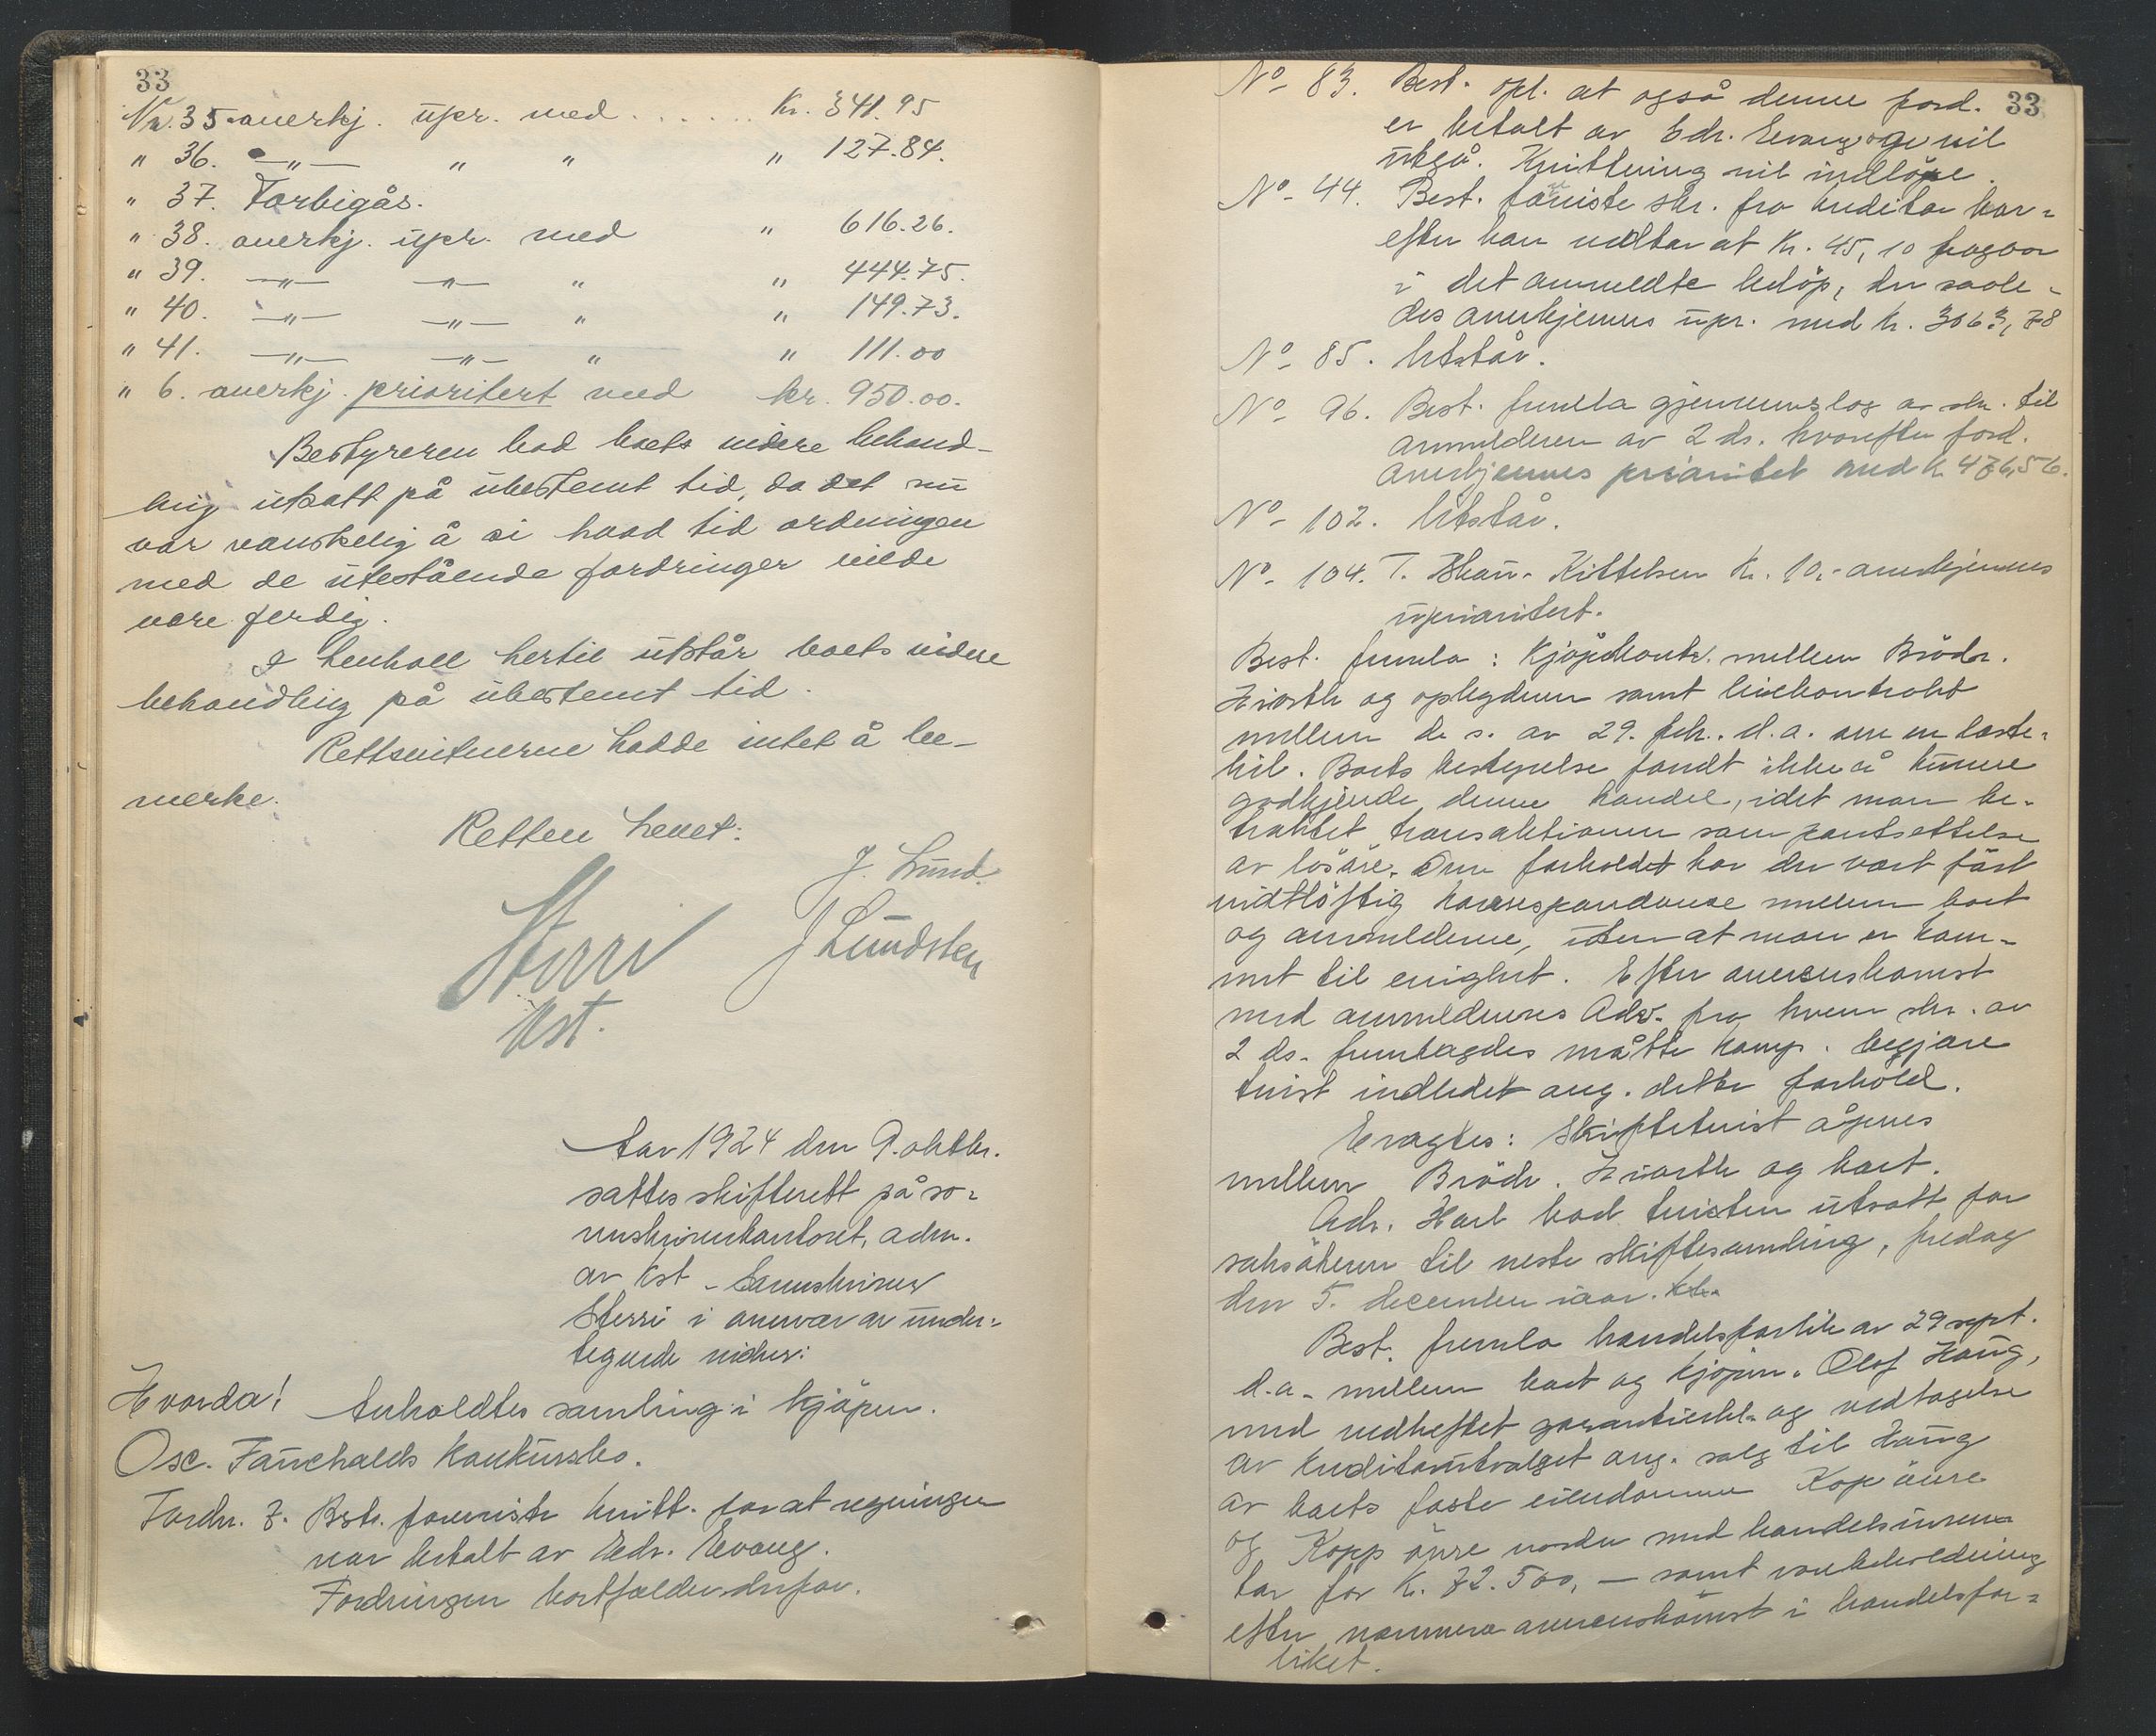 33
Nr. 35 anerkj. upr. med ...... Kr. 341.95
" 36. —"— " " " 127.84.
" 37. Forbigås.
" 38. anerkj. upr. med " 616.26.
" 39. —"— —"— " " 444.75.
" 40. —"— —"— " " 149.73.
" 41. —"— —"— " " 111.00
" 6. anerkj. prioritert med kr. 950.00.
Bestyreren bad boets videre behand-
ling utsatt på ubestemt tid, da det nu
var vanskelig å si hvad tid ordningen
med de utestående fordringer vilde
være ferdig.
I henhold hertil utstår boets videre
behandling på ubestemt tid.
Rettsvitnerne hadde intet å be-
merke.
Retten hevet:
J. Lund.
Sterri
J Lundsten
kst.
Aar 1924 den 9. oktbr.
sattes skifterett på so-
renskriverkontoret, adm.
av kst. sorenskriver
Sterri i nærvær av under-
tegnede vidner:
Hvorda! Anholdtes samling i kjøpm.
Osc. Fauchalds konkursbo.
Fordr. 7. Best. foreviste kvitt. for at regningen
var betalt av Edr. Evang.
Fordringen bortfalder derfor.
33
No - 83. Best. opl. at også denne ford.
er betalt av Edr. Evang og vil
utgå. Kvittering vil indløpe.
No - 44. Best. foreviste skr. fra kreditor hor-
efter han uttar at Kr. 45,10 fragaar
i det anmeldte beløp, der saale-
des anerkjennes upr. med kr. 3063,78
No - 85. Utstår.
No - 96. Best. fremla gjennemslag av skr. til
anmelderen av 2 ds. hvorefter ford.
anerkjennes prioritet med k 476,56.
No - 102. Utstår.
No - 104. T. Kittelsen Kr. 10,- anerkjennes
uprioritert.
Best. fremla: Kjøpekontr. mellem Brødr.
Hiorth og opbyderen samt leiekontrakt
mellem de s. av 29. feb. d.a. om en laste-
bil. Boets bestyrelse fandt ikke å kunne
godkjende denne handel, idet man be-
traktet transaktionen som pantsettelse
av løsøre. Om forholdet har der værtført
vidtløftig korrespondanse mellem boet
og anmelderne, uten at man er kom-
met til enighet. Efter overenskomst
med anmeldernes Adv. fra hvem skr. av
2 ds. fremlagdes måtte komp. begjære
tvist indledet ang. dette forhold.
Eragtes: Skiftetvist åpnes
mellem Brødr. Hiorth og boet.
Adv. Harl bad tvisten utsatt for
saksøkeren til neste skiftesamling, fredag
den 5. december iaar. kl.
Best. fremla handelsforlik av 29 sept.
d.a. mellem boet og kjøpm. Olof Haug,
med vedheftet garantierkl. og vedtagelse
av kreditorutvalget ang. salg til Haug
av boets faste eiendomme Kop øvre
og Kopp øvre nordre med handelsinven-
tar for Kr. 72.500,— samt varebeholdning
efter nærmere overenskomst i handelsfor-
liket.